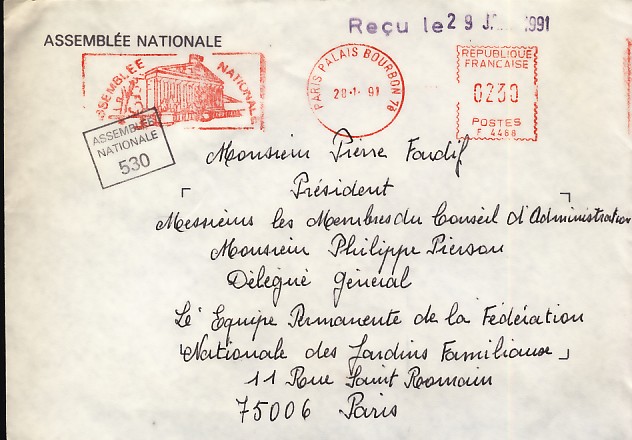 Reçu le 29 J 1991
ASSEMBLÉE NATIONALE
ASSEMBLÉE NATIONALE
PARIS PALAIS BOURBON 78
28-1- 91
REPUBLIQUE
FRANCAISE
0230
POSTES
F 4468
ASSEMBLÉE
NATIONALE
530
Monsieur Pierre
Président
Messieurs les Membres du Conseil d'Administration
Monsieur Philippe Pierson
Délégué Général
Le Equipe Permanente de la Fédération
Nationale des Jardins Familiaux
11 Rue Saint Romain
75006 Paris